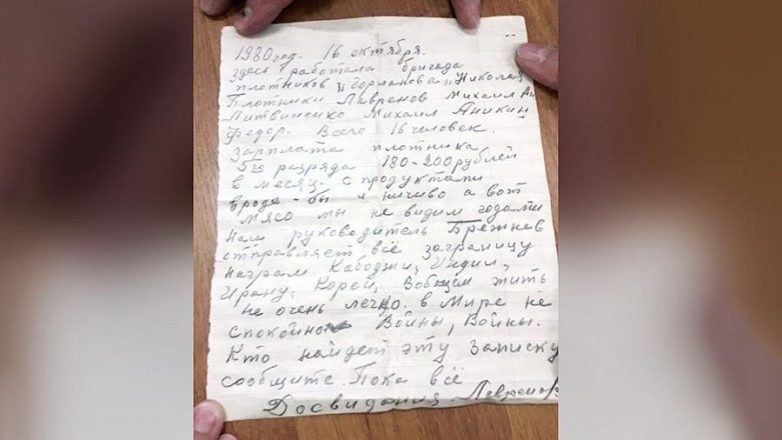 1980 год. 16 октября.
здесь работала бригада
плотников Горланова Николая
Плотники Лавренов Михаил Ан
Литвиненко Михаил Аникин
Федор. Всего 16 человек.
Зарплата плотника
5го разряда 180-200 рублей
в месяц. с продуктами
вроде-бы и ничиво а вот
мясо мы не видим годами
Наш руководитель Брежнев
отправляет всё заграницу
неграм Кабоджи, Индии,
Ирану. Корей, Вобщем жить
не очень легко. в Мире не
спокойно Войны, Войны.
Кто найдет эту Записку
сообщите. Пока всё
Досвидания. Лавренов